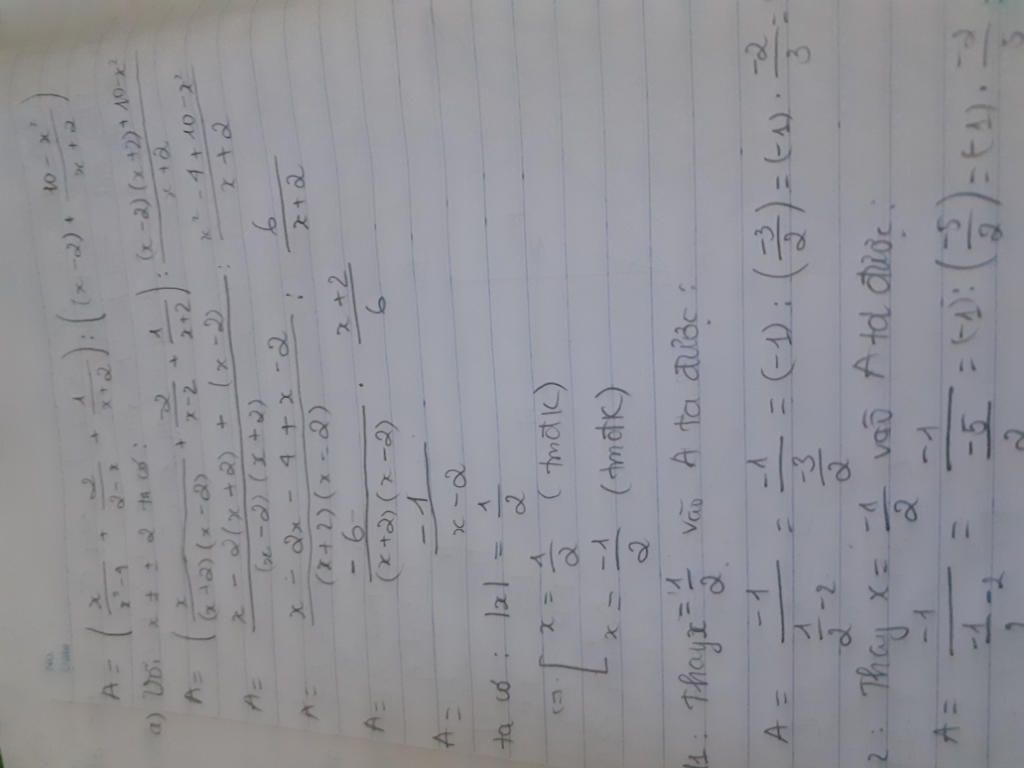 A = (x/(x²-4) + 2/(2-x) + 1/(x+2)) : ((x-2) + (10-x²)/(x+2))
a) Với x ≠ ± 2 ta có:
A = (x/((x+2)(x-2)) + -2/(x-2) + 1/(x+2)) : ((x-2)(x+2)+10-x²)/(x+2)
A = (x - 2(x+2) + (x-2))/((x-2)(x+2)) : (x²-4+10-x²)/(x+2)
A = (x - 2x - 4 + x - 2)/((x+2)(x-2)) : 6/(x+2)
A = -6/((x+2)(x-2)) . (x+2)/6
A = -1/(x-2)
ta có: |x| = 1/2
<=> [ x = 1/2 (tmđK)
x = -1/2 (tmđK)
1: Thay x = 1/2 vào A ta được:
A = -1/(1/2 - 2) = -1/(-3/2) = (-1) : (-3/2) = (-1) . -2/3 =
2: Thay x = -1/2 vào A ta được:
A = -1/(-1/2 - 2) = -1/(-5/2) = (-1) : (-5/2) = (-1) . -2/5